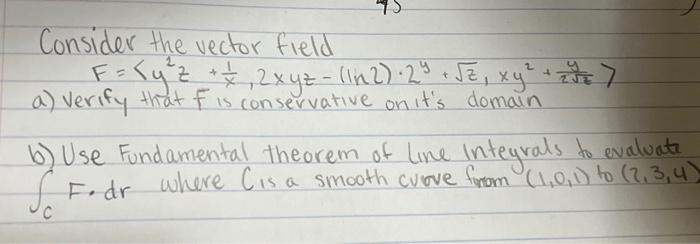 Consider the vector field
F = <y²z + 1/x, 2xyz - (ln2)·2^y + √z, xy² + y/(2√z)>
a) verify that F is conservative on it's domain
b) Use Fundamental theorem of line integrals to evaluate
∫_C F·dr where C is a smooth curve from (1,0,1) to (2,3,4)